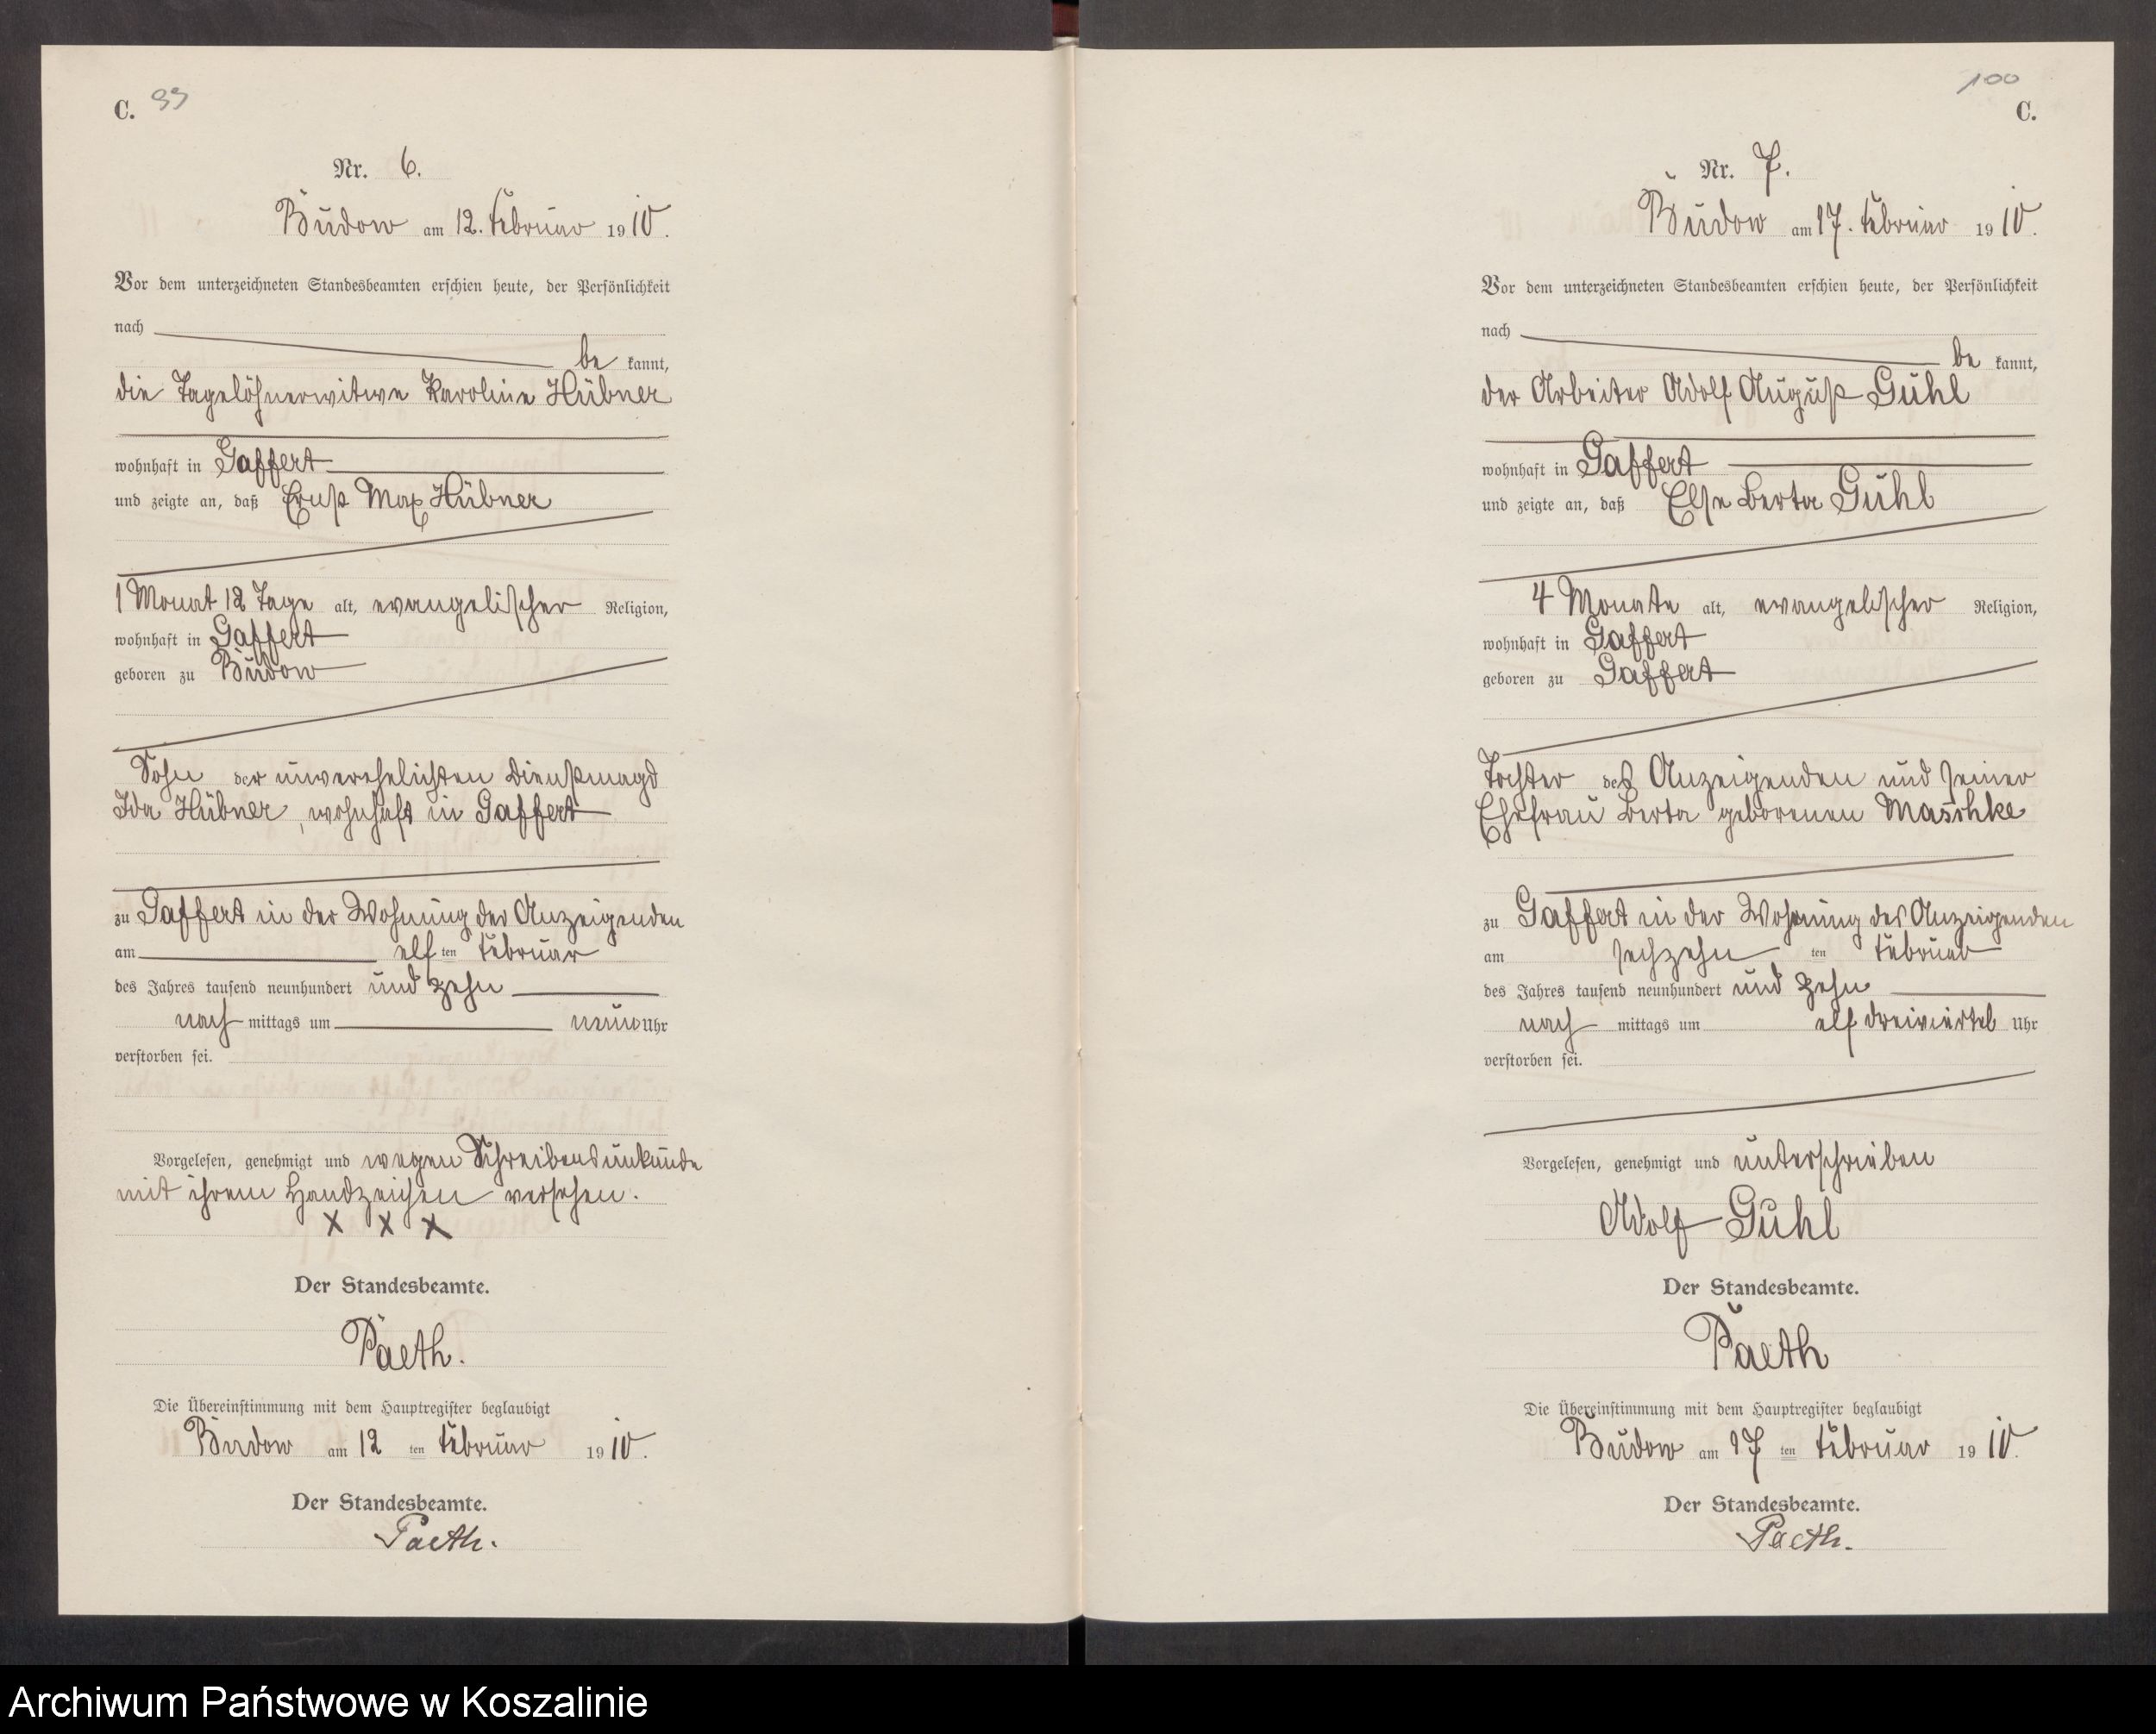 C. 99
Nr. 6.
Budow am 12. Februar 1910.
Vor dem unterzeichneten Standesbeamten erschien heute, der Persönlichkeit
nach
be kannt,
die Tagelöhnerwitwe Karoline Hübner
wohnhaft in Gaffert
und zeigte an, daß Ernst Max Hübner
1 Monat 12 Tage alt, evangelischer Religion,
wohnhaft in Gaffert
geboren zu Budow
Sohn der unverehelichten Dienstmagd
Ida Hübner, wohnhaft in Gaffert
zu Gaffert in der Wohnung der Anzeigenden
am elf ten Februar
des Jahres tausend neunhundert und zehn
nach mittags um neun Uhr
verstorben sei.
Vorgelesen, genehmigt und wegen Schreibensunkunde
mit ihrem Handzeichen versehen.
x x x
Der Standesbeamte.
Paeth.
Die Übereinstimmung mit dem Hauptregister beglaubigt
Budow am 12 ten Februar 1910.
Der Standesbeamte.
Paeth.
100
C.
Nr. 7.
Budow am 17. Februar 1910.
Vor dem unterzeichneten Standesbeamten erschien heute, der Persönlichkeit
nach
be kannt,
der Arbeiter Adolf August Guhl
wohnhaft in Gaffert
und zeigte an, daß Else Berta Guhl
4 Monate alt, evangelischer Religion,
wohnhaft in Gaffert
geboren zu Gaffert
Tochter des Anzeigenden und seiner
Ehefrau Berta geborenen Maschke
zu Gaffert in der Wohnung des Anzeigenden
am sechzehn ten Februar
des Jahres tausend neunhundert und zehn
nach mittags um elf dreiviertel Uhr
verstorben sei.
Vorgelesen, genehmigt und unterschrieben
Adolf Guhl
Der Standesbeamte.
Paeth
Die Übereinstimmung mit dem Hauptregister beglaubigt
Budow am 17 ten Februar 1910.
Der Standesbeamte.
Paeth.
Archiwum Państwowe w Koszalinie